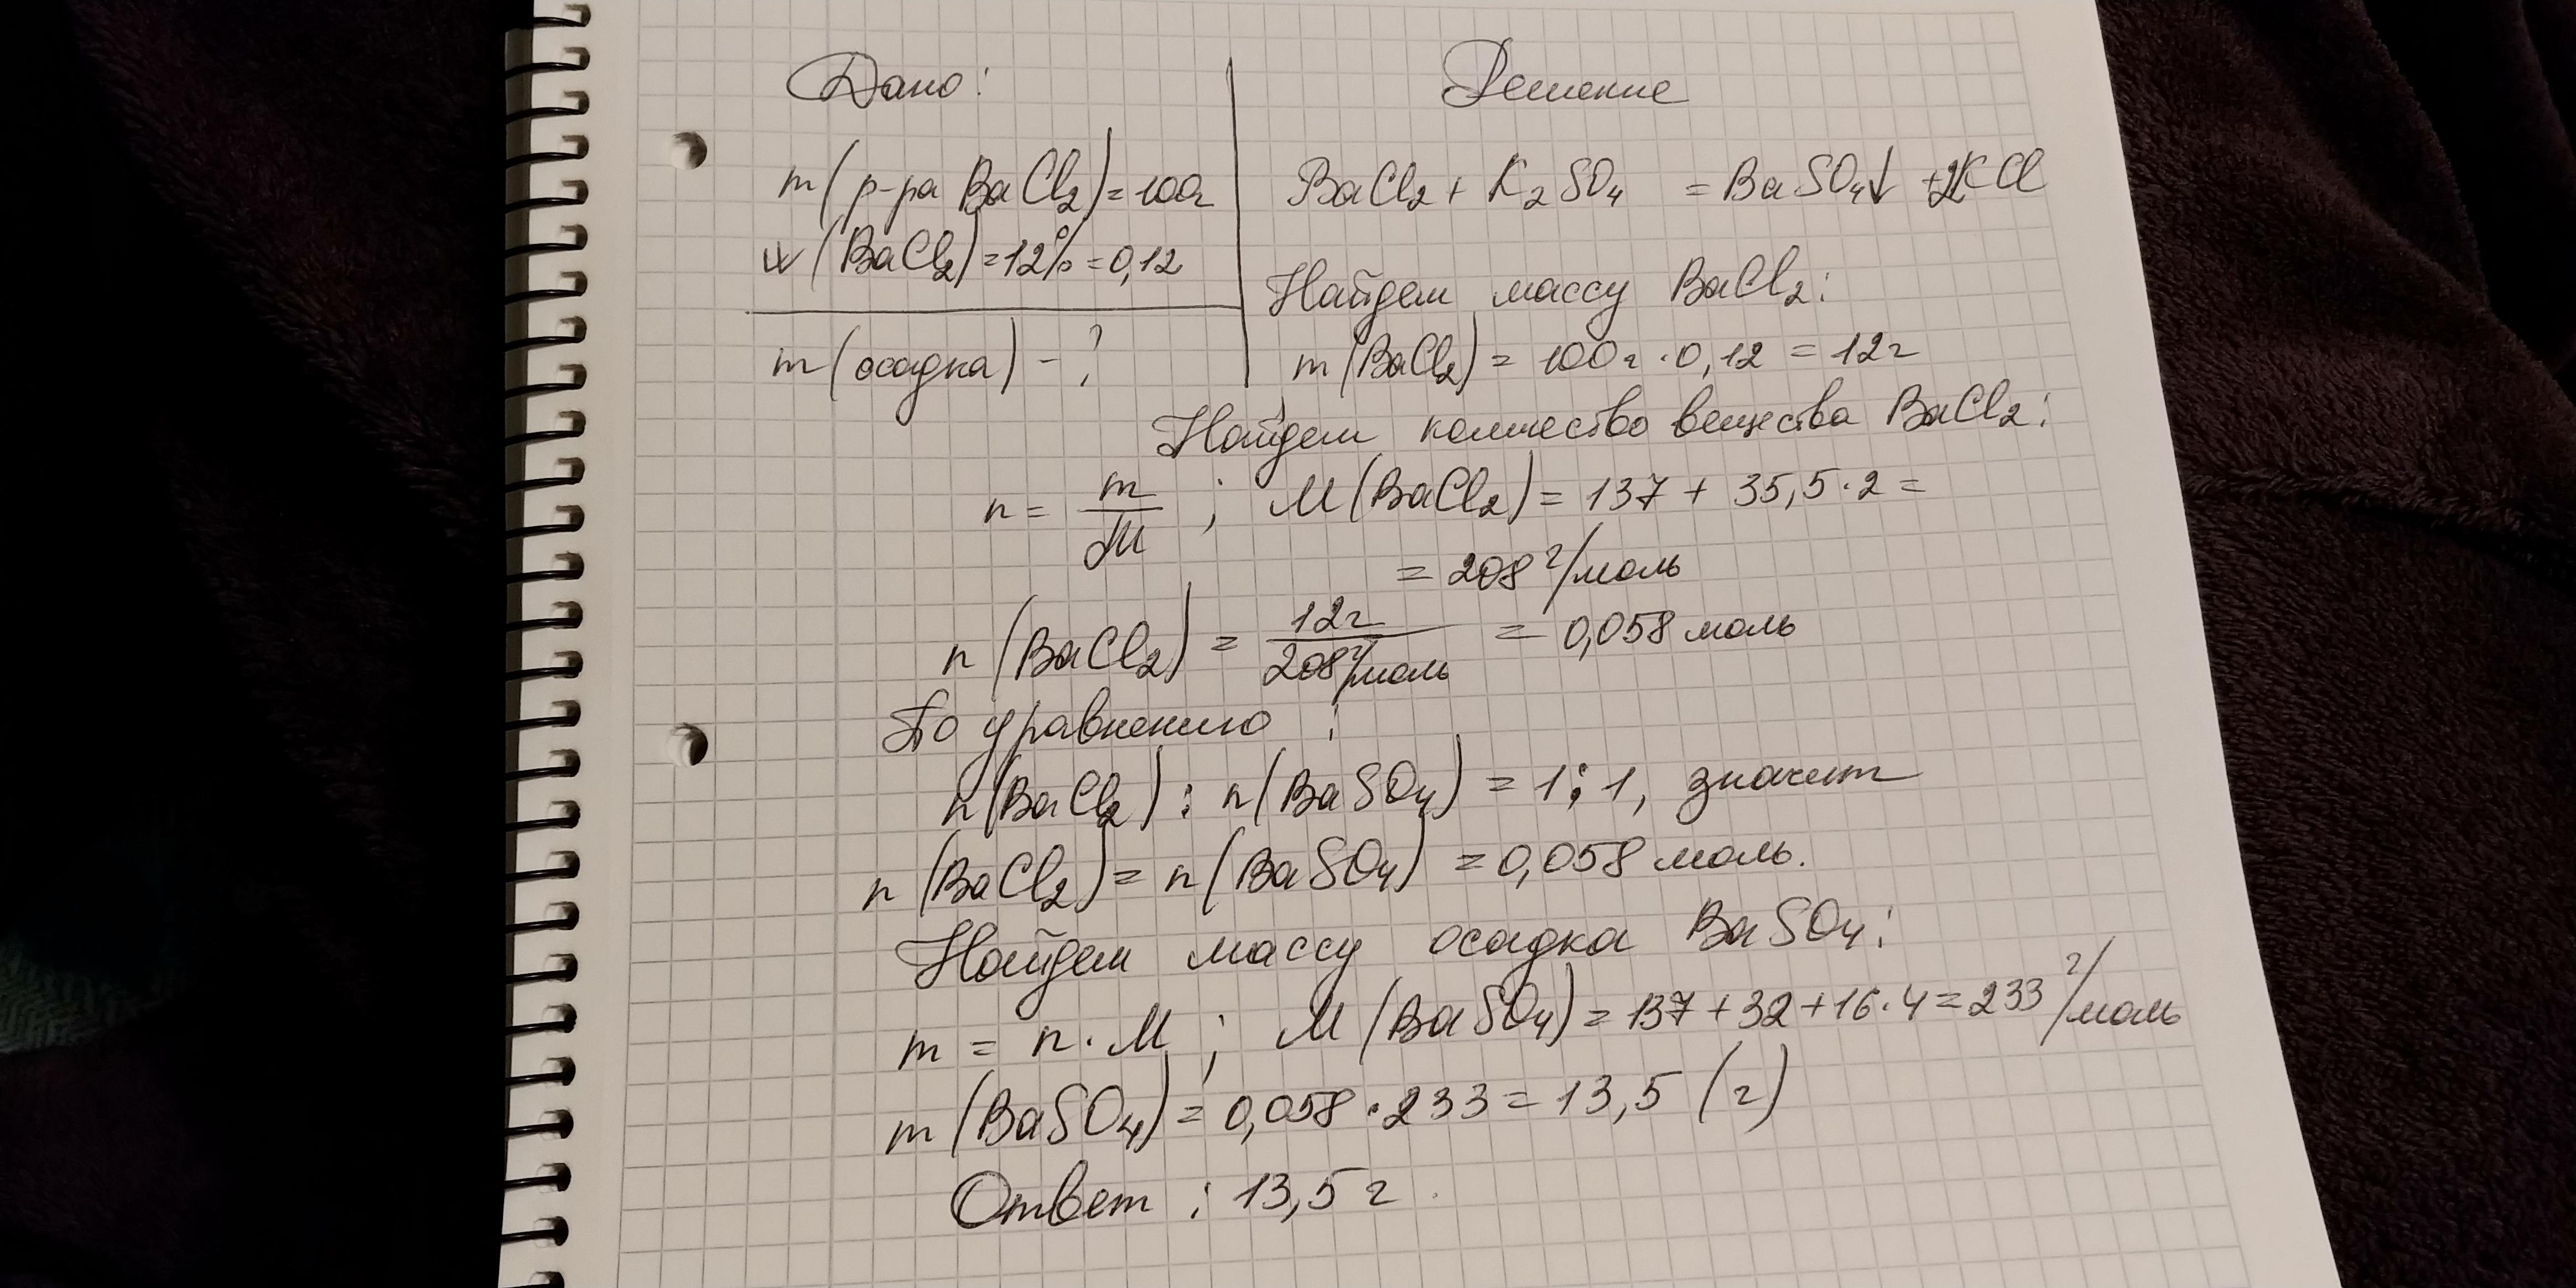 Дано:
m(р-ра BaCl₂)=100г
w(BaCl₂)=12%=0,12
m(осадка) - ?
Решение
BaCl₂ + K₂SO₄ = BaSO₄↓ +2KCl
Найдем массу BaCl₂:
m(BaCl₂) = 100г · 0,12 = 12г
Найдем количество вещества BaCl₂:
n = m/M ; M(BaCl₂) = 137 + 35,5·2 =
= 208 г/моль
n(BaCl₂) = 12г/208г/моль = 0,058 моль
По уравнению :
n(BaCl₂) : n(BaSO₄) = 1:1, значит
n(BaCl₂) = n(BaSO₄) = 0,058 моль.
Найдем массу осадка BaSO₄:
m = n·M ; M(BaSO₄) = 137+32+16·4=233 г/моль
m(BaSO₄) = 0,058 · 233 = 13,5 (г)
Ответ : 13,5 г